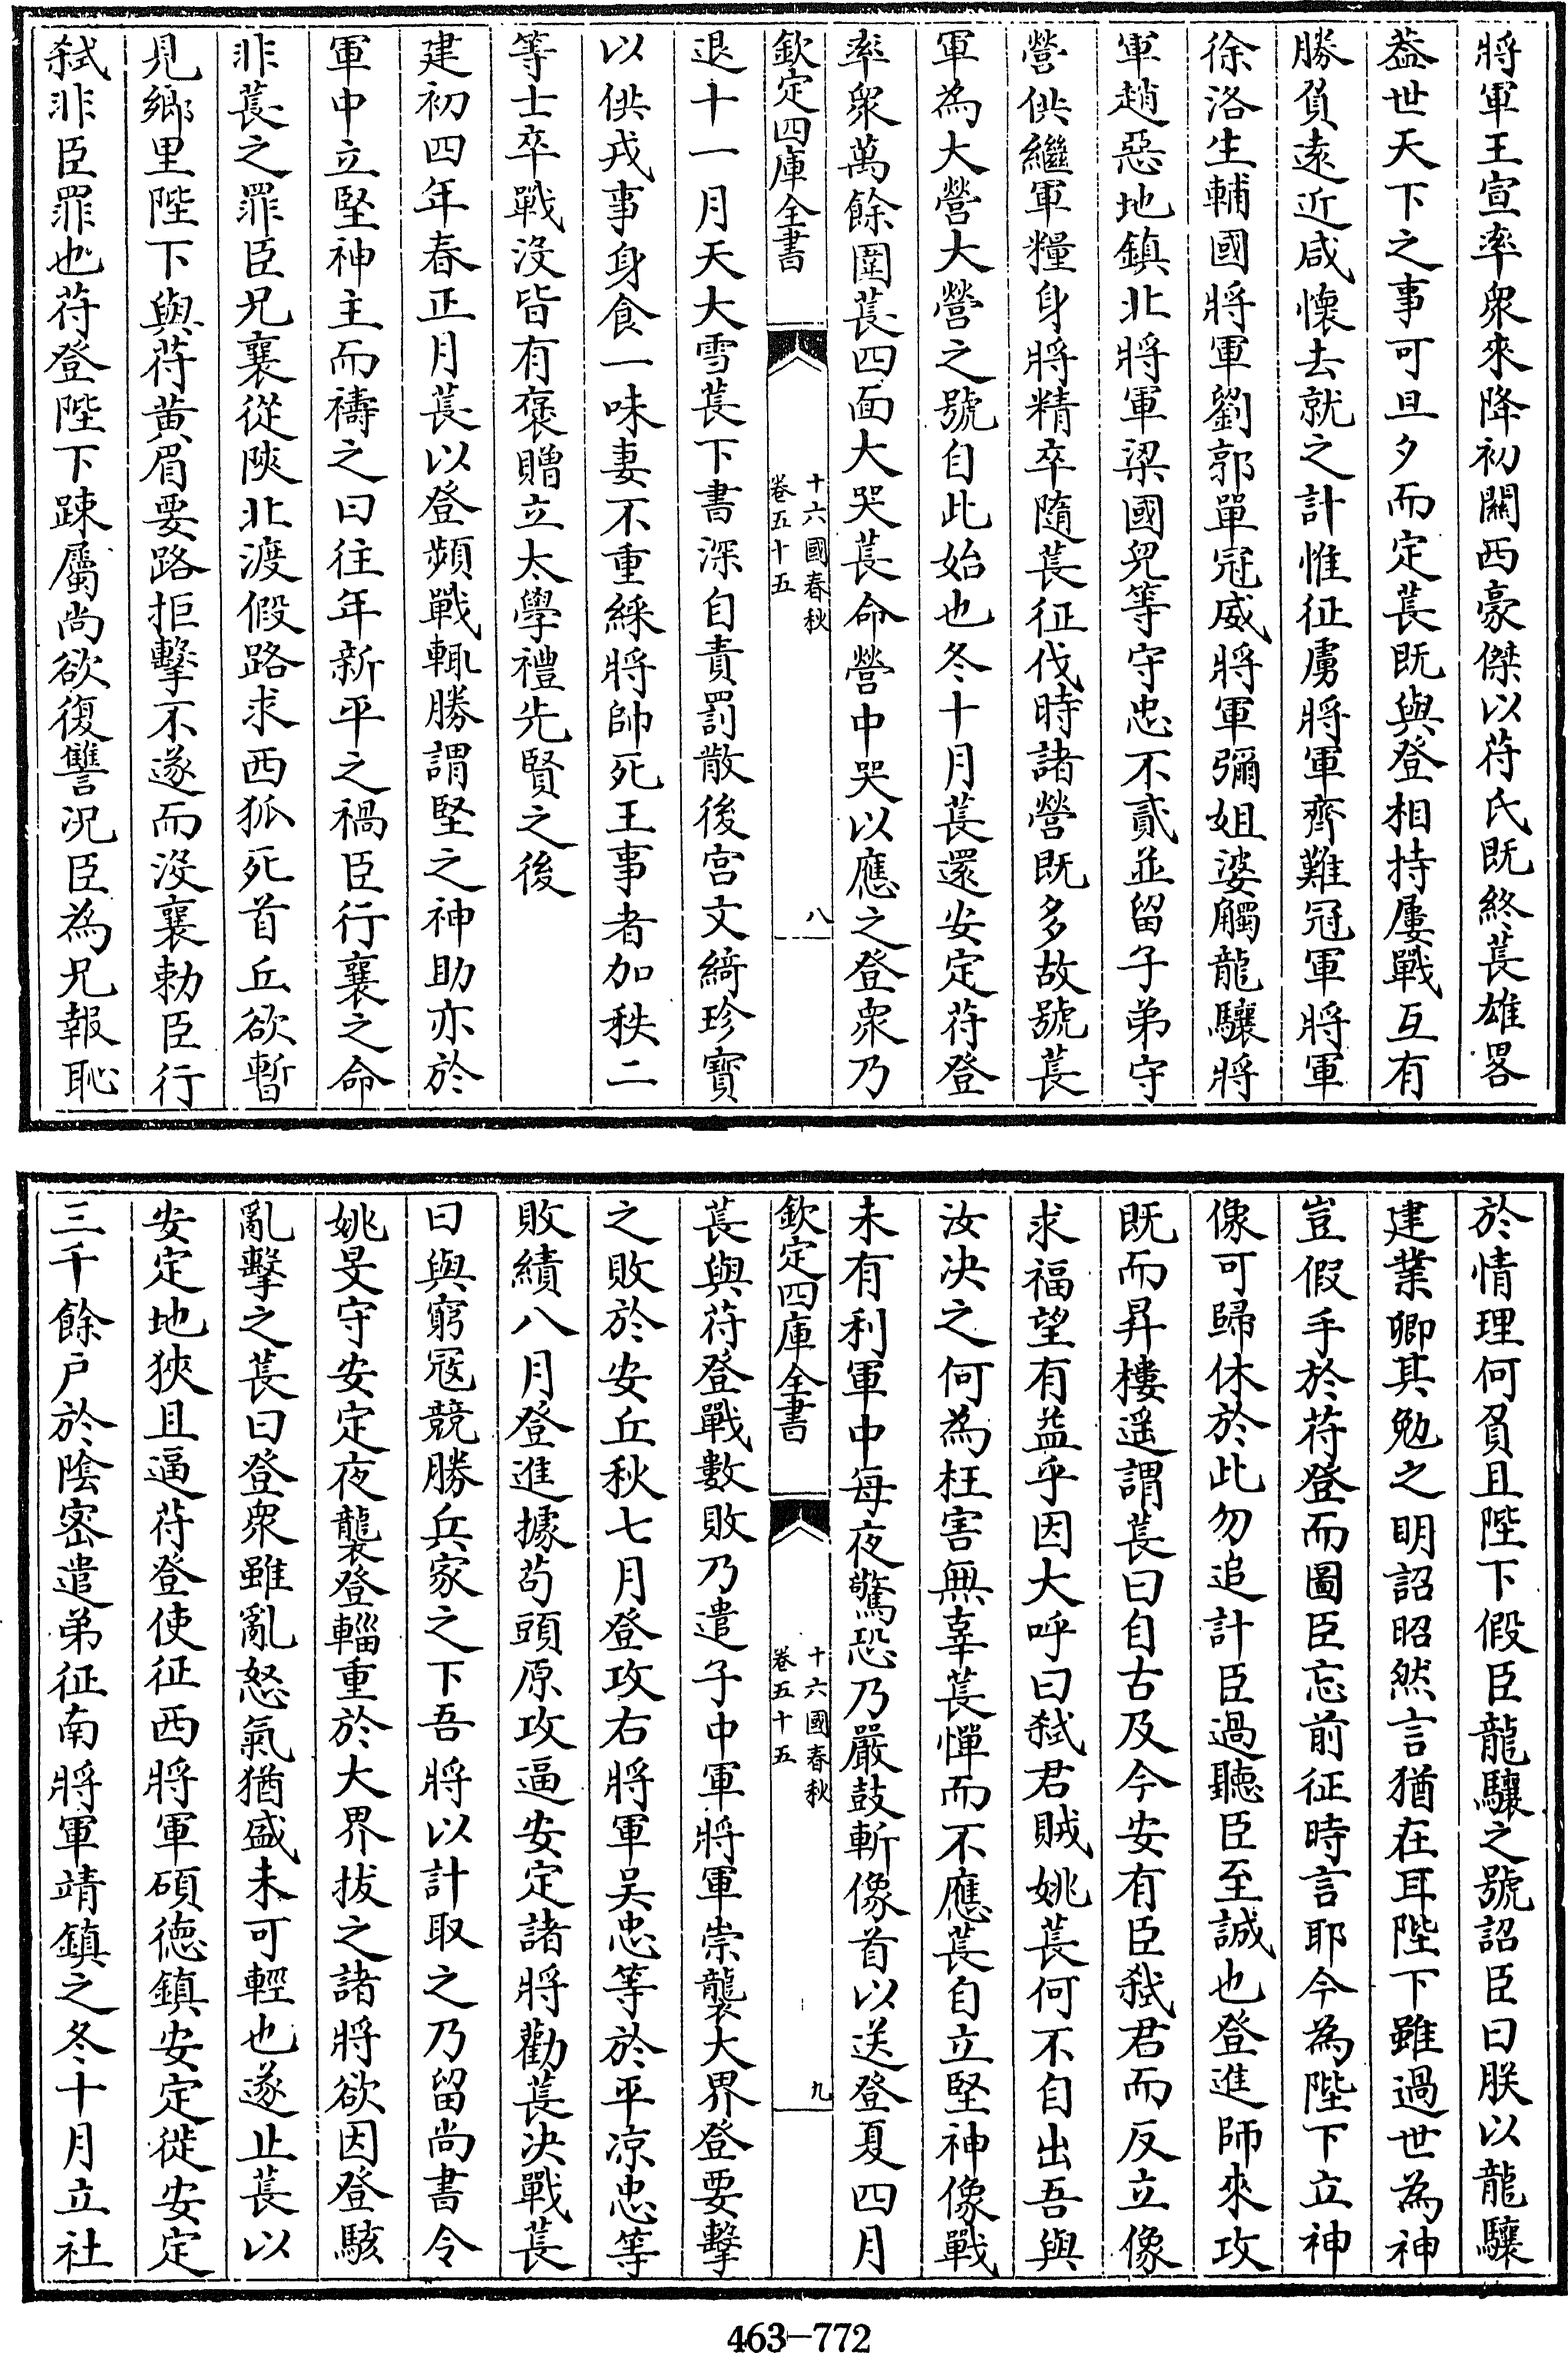 將軍王宣率衆來降初關西豪傑以苻氏既終萇雄畧
葢世天下之事可旦夕而定萇既與登相持屢戰互有
勝負遠近咸懷去就之計惟征虜將軍齊難冠軍將軍
徐洛生輔國將軍劉郭單冠威將軍彌姐婆觸龍驤將
軍趙惡地鎮北將軍梁國兒等守忠不貳並留子弟守
營供繼軍糧身將精卒隨萇征伐時諸營既多故號萇
軍為大營大營之號自此始也冬十月萇還安定苻登
率衆萬餘圍萇四面大哭萇命營中哭以應之登衆乃
欽定四庫全書
十六國春秋
卷五十五
八
退十一月天大雪萇下書深自責罰散後宮文綺珍寶
以供戎事身食一味妻不重綵將帥死王事者加秩二
等士卒戰沒皆有褒贈立太學禮先賢之後
建初四年春正月萇以登頻戰輒勝謂堅之神助亦於
軍中立堅神主而禱之曰往年新平之禍臣行襄之命
非萇之罪臣兄襄從陝北渡假路求西狐死首丘欲暫
見鄉里陛下與苻黄眉要路拒擊不遂而沒襄勅臣行
弑非臣罪也苻登陛下踈屬尚欲復讐况臣為兄報恥
於情理何負且陛下假臣龍驤之號詔臣曰朕以龍驤
建業卿其勉之明詔昭然言猶在耳陛下雖過世為神
豈假手於苻登而圖臣忘前征時言耶今為陛下立神
像可歸休於此勿追計臣過聽臣至誠也登進師來攻
既而昇樓遥謂萇曰自古及今安有臣弑君而反立像
求福望有益乎因大呼曰弑君賊姚萇何不自出吾與
汝决之何為枉害無辜萇憚而不應萇自立堅神像戰
未有利軍中每夜驚恐乃嚴鼓斬像首以送登夏四月
欽定四庫全書
十六國春秋
卷五十五
九
萇與苻登戰數敗乃遣子中軍將軍崇襲大界登要擊
之敗於安丘秋七月登攻右將軍吴忠等於平凉忠等
敗績八月登進據苟頭原攻逼安定諸將勸萇决戰萇
曰與窮冦競勝兵家之下吾將以計取之乃留尚書令
姚旻守安定夜襲登輜重於大界拔之諸將欲因登駭
亂擊之萇曰登衆雖亂怒氣猶盛未可輕也遂止萇以
安定地狹且逼苻登使征西將軍碩德鎮安定徙安定
三千餘户於陰密遣弟征南將軍靖鎮之冬十月立社
463-772